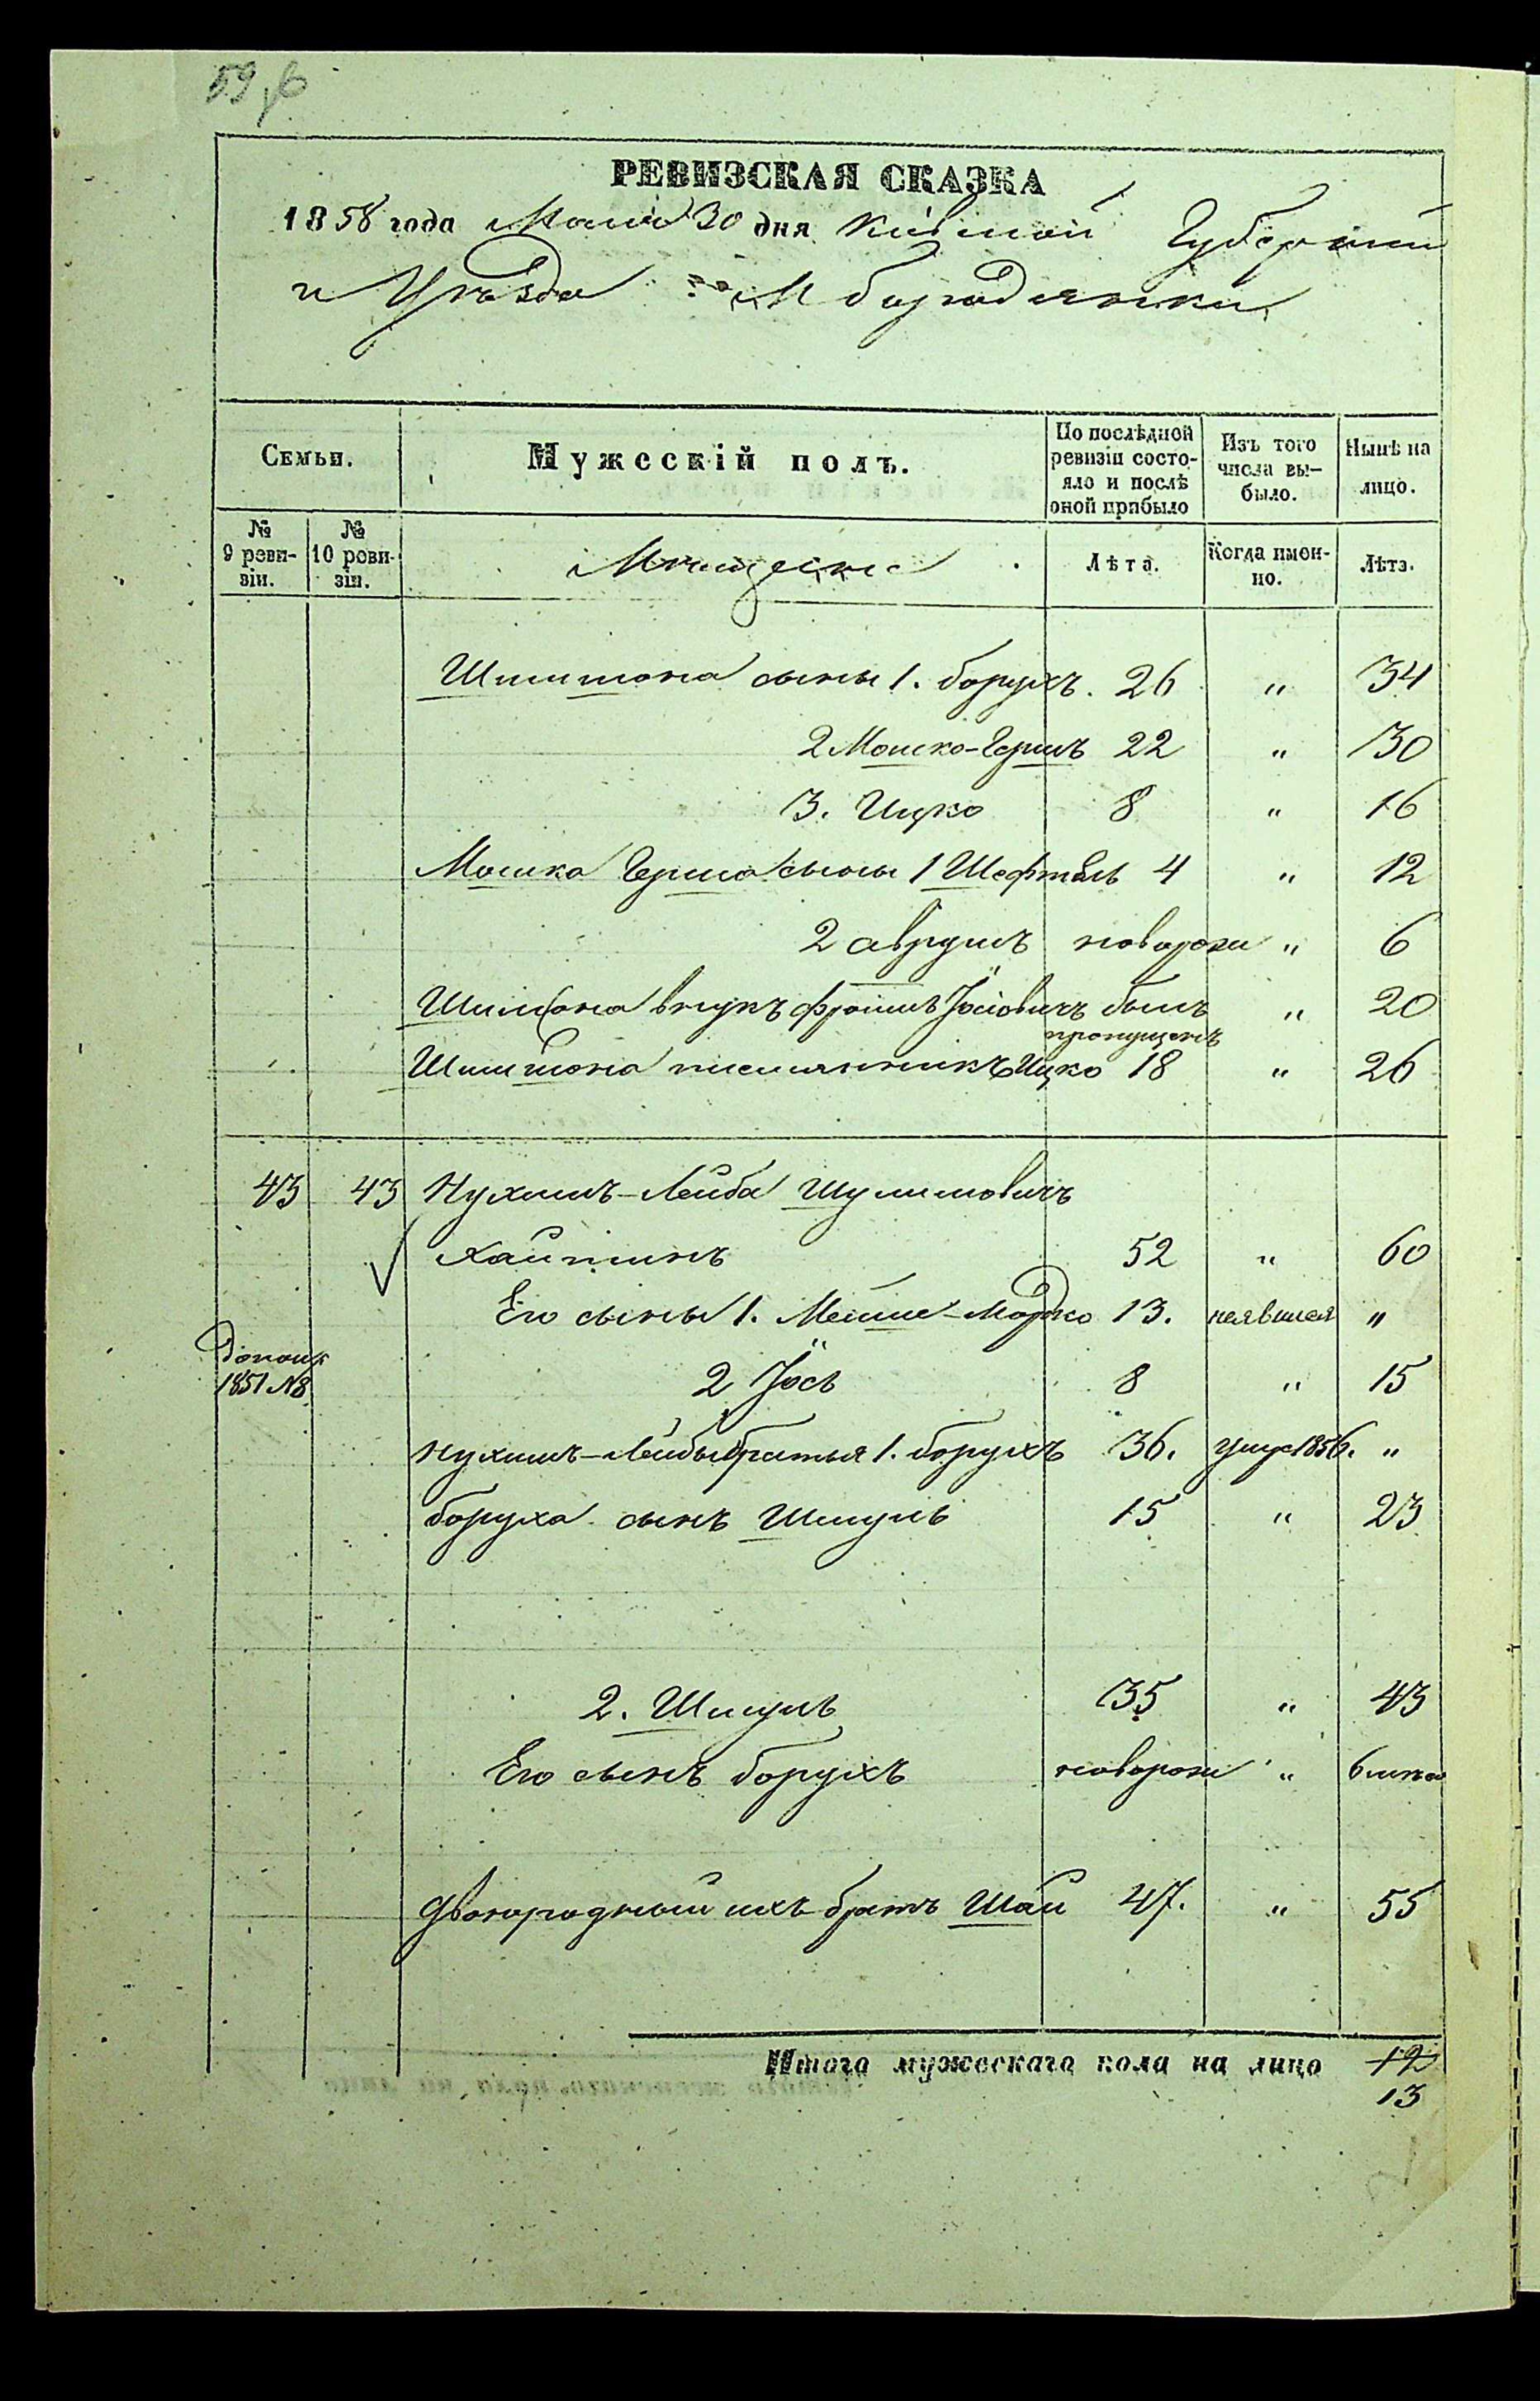 59 об
РЕВИЗСКАЯ СКАЗКА
1858 года Мая 30 дня Кіевской Губерніи
и Уѣзда М Бородянки
Семьи. Мужескій полъ. По послѣдной ревизіи состояло и послѣ оной прибыло Изъ того числа выбыло. Нынѣ на лицо.
№ 9 ревизіи. № 10 ревизіи. Мѣщане Лѣта. Когда именно. Лѣта.
Шимшона сыны 1. Борухъ. 26 " 34
2 Мошко-Гершъ 22 " 30
3. Ицко 8 " 16
Мошка Герша сыны 1 Шефтель 4 " 12
2 Аврумъ новорож " 6
Шимшона внукъ Фроимъ Іосіовичъ былъ пропущенъ " 20
Шимшона племянникъ Ицко 18 " 26
43 43 Нухимъ-Лейба Шулимовичъ
Хайтинъ 52 " 60
Его сыны 1. Мейше-Мордко 13. неявился "
2 Іось 8 " 15
1851 №8
Нухимъ-Лейбы братья 1. Борухъ 36. уме 1856. "
Боруха сынъ Шмуль 15 " 23
2. Шмуль 35 " 43
Его сынъ Борухъ новорож " 6
Двоюродный ихъ братъ Шаи 47. " 55
Итого мужескаго пола на лицо 12
13